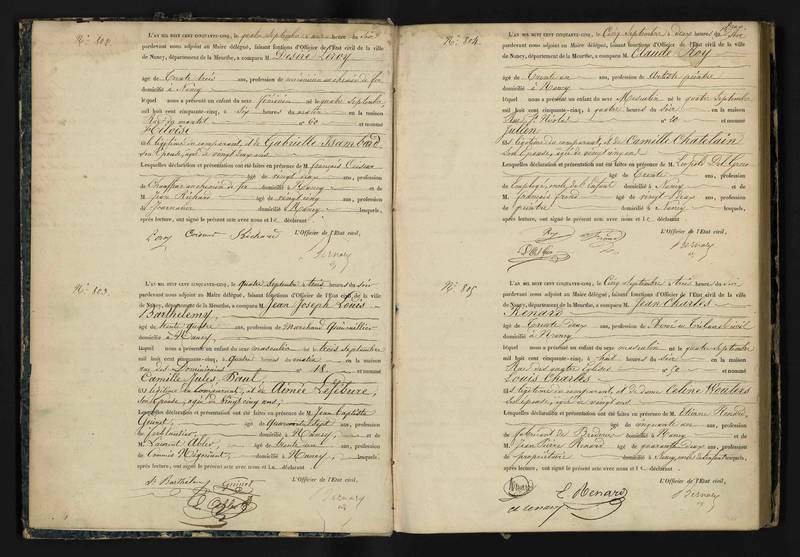 No. 802
L'AN MIL HUIT CENT CINQUANTE-CINQ, le quatre Septembre à heure du
pardevant nous adjoint au Maire délégué, faisant fonctions d'Officier de l'Etat civil de la ville
de Nancy, département de la Meurthe, a comparu M. Désiré Leroy
âgé de trente trois ans, profession de mécanicien au chemin de fer
domicilié à Nancy
lequel nous a présenté un enfant du sexe féminin né le quatre Septembre
mil huit cent cinquante-cinq, à six heures du matin en la maison
Rue du montet n° 60 et nommé
Héloïse
légitime du comparant, et de Gabrielle Isambard
son épouse, âgée de vingt ans
Lesquelles déclaration et présentation ont été faites en présence de M. françois
âgé de vingt deux ans, profession
de Chauffeur au chemin de fer domicilié à Nancy et de
M. Jean Richard âgé de vingt cinq ans, profession
de Journalier domicilié à Nancy lesquels,
après lecture, ont signé le présent acte avec nous et le déclarant
L'Officier de l'Etat civil,
Leroy Richard Bernard
No. 803.
L'AN MIL HUIT CENT CINQUANTE-CINQ, le quatre Septembre à trois heures du soir
pardevant nous adjoint au Maire délégué, faisant fonctions d'Officier de l'Etat civil de la ville
de Nancy, département de la Meurthe, a comparu M. Jean Joseph Louis
Barthélemy,
âgé de trente quatre ans, profession de Marchand Quincaillier
domicilié à Nancy
lequel nous a présenté un enfant du sexe masculin né le trois Septembre
mil huit cent cinquante-cinq, à quatre heures du matin en la maison
rue des Dominicains n° 18. et nommé
Camille Jules Paul
légitime du comparant, et de Aimée Lefebure,
son épouse, âgée de vingt cinq ans;
Lesquelles déclaration et présentation ont été faites en présence de M. Jean Baptiste
âgé de quarante sept ans, profession
de ferblantier, domicilié à Nancy, et de
M. Laurent âgé de trente un ans, profession
de Commis Négociant, domicilié à Nancy, lesquels,
après lecture, ont signé le présent acte avec nous et le déclarant
L'Officier de l'Etat civil,
Barthélemy
Bernard
No. 804.
L'AN MIL HUIT CENT CINQUANTE-CINQ, le Cinq Septembre à deux heures du soir
pardevant nous adjoint au Maire délégué, faisant fonctions d'Officier de l'Etat civil de la ville
de Nancy, département de la Meurthe, a comparu M. Claude Roy
âgé de trente un ans, profession de Artiste peintre
domicilié à Nancy
lequel nous a présenté un enfant du sexe Masculin né le quatre Septembre
mil huit cent cinquante-cinq, à quatre heures du soir en la maison
Rue St. Nicolas n° 20 et nommé
Julien
légitime du comparant, et de Camille Chatelain
son épouse, âgée de vingt un ans
Lesquelles déclaration et présentation ont été faites en présence de M.
âgé de trente ans, profession
de Employé domicilié à Nancy et de
M. françois âgé de vingt deux ans, profession
de peintre domicilié à Nancy lesquels,
après lecture, ont signé le présent acte avec nous et le déclarant
L'Officier de l'Etat civil,
Roy
Bernard
No. 805
L'AN MIL HUIT CENT CINQUANTE-CINQ, le Cinq Septembre à trois heures du soir
pardevant nous adjoint au Maire délégué, faisant fonctions d'Officier de l'Etat civil de la ville
de Nancy, département de la Meurthe, a comparu M. Jean Charles
Renard
âgé de trente deux ans, profession de Avoué au tribunal civil
domicilié à Nancy
lequel nous a présenté un enfant du sexe masculin né le quatre Septembre
mil huit cent cinquante-cinq, à huit heures du soir en la maison
Rue des quatre Eglises n° 50 et nommé
Louis Charles
légitime du comparant, et de dame Celene Wouters
son épouse, âgée de vingt ans
Lesquelles déclaration et présentation ont été faites en présence de M. Etienne Renard,
âgé de cinquante ans, profession
de fabricant de Broderies domicilié à Nancy et de
M. Jean Pierre Renard âgé de quarante deux ans, profession
de propriétaire domicilié à Nancy, lesquels,
après lecture, ont signé le présent acte avec nous et le déclarant
L'Officier de l'Etat civil,
Renard E. Renard
Bernard